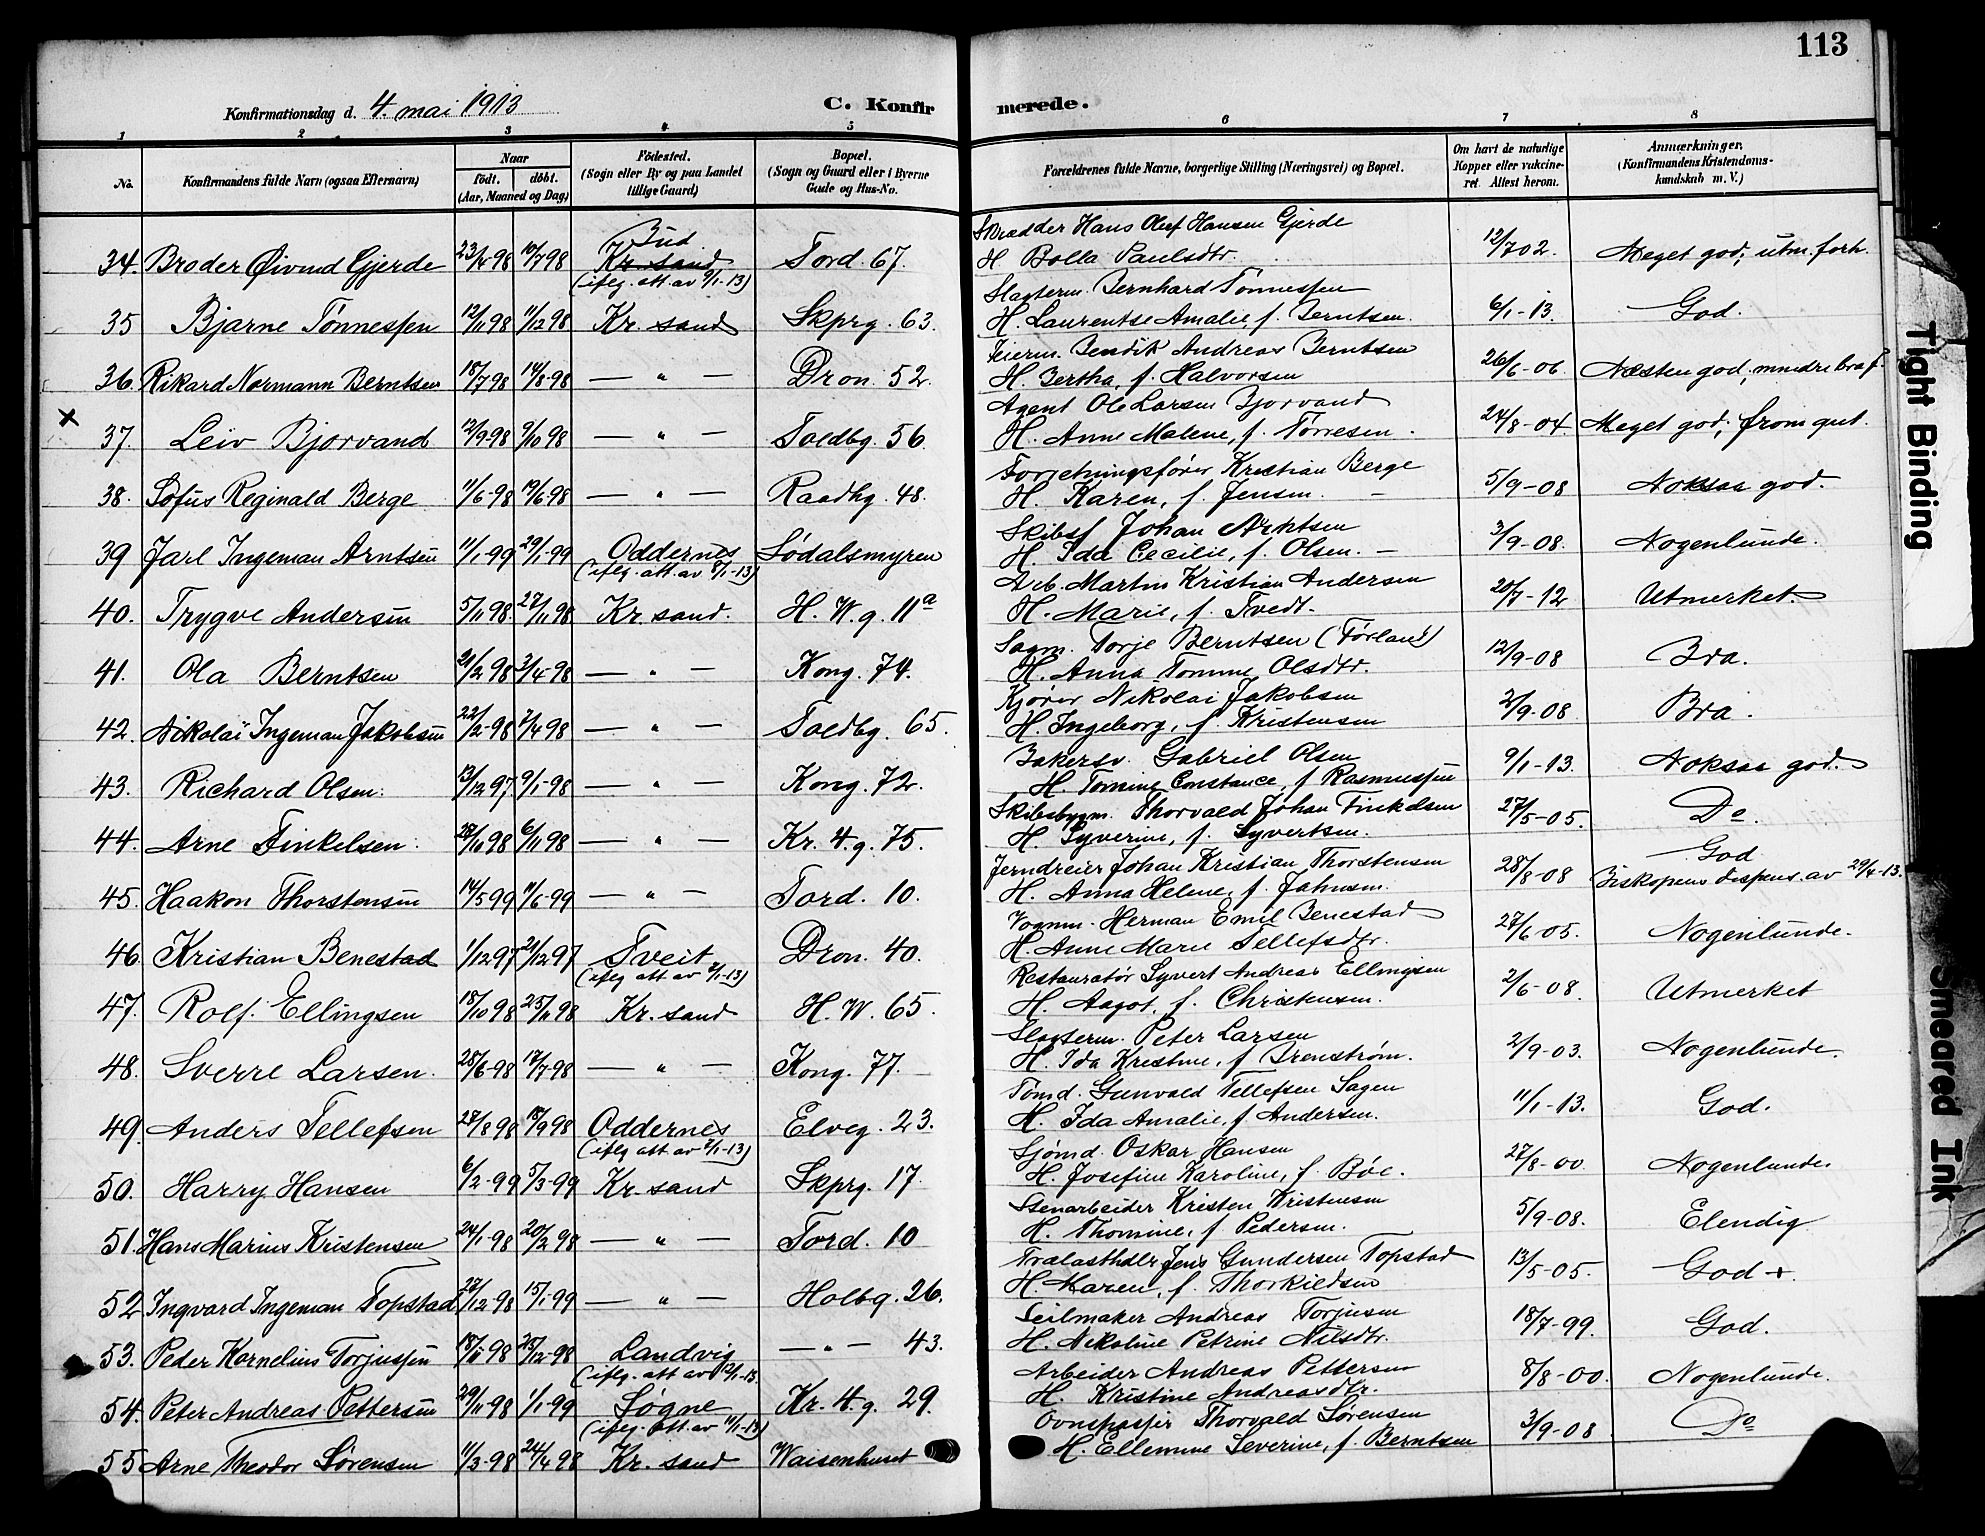 113
Konfirmationsdag d. 4. mai 1913
C. Konfirmerede.
1 2 3 4 5 6 7 8
No.
Konfirmandens fulde Navn (ogsaa Efternavn)
Naar
födt. döbt.
(Aar, Maaned og Dag)
Födested.
(Sogn eller By og paa Landet
tillige Gaard)
Bopæl.
(Sogn og Gaard eller i Byerne
Gade og Hus-No.
Forældrenes fulde Navne, borgerlige Stilling (Næringsvei) og Bopæl.
Om havt de naturlige
Kopper eller vakcine-
ret. Attest herom.
Anmærkninger,
(Konfirmandens Kristendoms-
kundskab m. V.)
Skrædder Hans Olaf Hansen Gjerde
Bud
34. Broder Øivind Gjerde 23/4 98 10/7 98 Kr. sand Tord. 67. H Bolla Paulsdtr. 12/7 02. Meget god; utm. forh.
(iflg. att. av 9/1-13)
Slagterm. Bernhard Tønnessen
35 Bjarne Tønnessen 12/11 98 11/12 98 Kr. sand Skprg. 63. H. Laurentse Amalie f. Berntsen. 6/1-13. God.
Feierm. Bendik Andreas Berntsen
36. Rikard Normann Berntsen 18/7 98 14/8-98 — " — Dron. 52. H. Bertha, f. Halvorsen 26/6-06 Næsten god, mindre bra f.
Agent Ole Larsen Bjorvand
× 37. Leiv Bjorvand 12/9-98 9/10 98 — " — Toldbg. 56. H. Anne Malene, f. Tørresen. 24/8-04. Meget god; from gut.
Forretningsfører Kristian Berge
38. Sofus Reginald Berge 11/6-98 19/6-98 — " — Raadhg. 48. H. Karen, f. Jensen. — 5/9-08 Noksaa god.
Skibsf. Johan Arntsen
39 Jarl Ingeman Arntsen 11/1-99 29/1-99 Oddernes Sødalsmyren H. Ida Cecilie, f. Olsen. — 3/9-08. Nogenlunde.
(iflg. att. av 8/1-13)
Arb. Martin Kristian Andersen
40. Trygve Andersen 5/11 98. 27/11 98 Kr. sand. H. W. g. 11a H. Marie, f. Tvedt. 20/7-12 Utmerket.
Sagm. Torje Berntsen (Førland)
41. Ola Berntsen 21/2 98 3/4-98 — " — Kong. 74. H. Anna Tomine Olsdtr. 12/9-08 Bra.
Kjører Nikolai Jakobsen
42. Nikolai Ingeman Jakobsen 22/2-98 2/4 98 — " — Toldbg. 65. H. Ingeborg, f. Kristensen 2/9-08 Bra.
Bakersv. Gabriel Olsen
43. Richard Olsen. 13/12 97 9/1-98 — " — Kong. 72. H. Tomine Constance, f. Rasmussen 9/1-13. Noksaa god.
Skibsbygm. Thorvald Johan Finkelsen
44. Arne Finkelsen. 28/10 98 6/11 98 — " — Kr. 4. g. 75. H. Syverine, f. Syvertsen. 27/5-05. Do.
Jerndreier Johan Kristian Thorstensen God
45. Haakon Thorstensen 14/5 99 11/6-99 — " — Tord. 10. H. Anna Helene, f. Jahnsen. 28/8-08 Biskopens dispens. av 29/4-13.
Vognm. Herman Emil Benestad
46. Kristian Benestad 1/12 97 21/12 97 Tveit Dron. 40. H. Anne Marie Tellefsdtr. 27/6-05. Nogenlunde.
(iflg. att av 7/1-13)
Restauratør Syvert Andreas Ellingsen
47. Rolf. Ellingsen 18/10 98 25/11 98 Kr. sand H. W. 65. H. Aagot, f. Christensen. 2/6-08. Utmerket
Slagterm. Peter Larsen
48. Sverre Larsen. 25/6-98 17/7-98 — " — Kong. 77. H. Ida Kristine, f. Brenstrøm. 2/9-03. Nogenlunde.
Tømd. Gunvald Tellefsen Sagen
49. Anders Tellefsen 27/8 98 18/9 98 Oddernes Elveg. 23. H. Ida Amalie, f. Andersen. 11/1-13. God.
(iflg att av 7/1-13)
Sjømd. Oskar Hansen
50. Harry Hansen 6/2-99 5/3-99 Kr. sand Skprg. 17. H. Josefine Karoline, f. Bøe. 27/8-00 Nogenlunde.
Stenarbeider Kristen Kristensen
51. Hans Marius Kristensen 24/1-98 20/2 98 — " — Tord. 10 H. Thomine, f. Pedersen. 5/9-08. Elendig
Trælasthdlr Jens Gundersen Topstad
52. Ingvard Ingeman Topstad 27/12-98 15/1-99 — " — Holbg. 26. H. Maren, f. Thorkildsen 13/5-05. God +.
Seilmaker Andreas Torjusen
53. Peder Kornelius Torjussen 18/11 98 25/12-98 Landvig — " — 43. H. Nikoline Petrine Nilsdtr. 18/7-99. God.
(iflg. att av 12/1-13
Arbeider Andreas Pettersen
54. Peter Andreas Pettersen 29/11 98 1/1-99 Søgne Kr. 4. g. 29. H. Kristine Andreasdtr. 8/8-00. Nogenlunde.
(iflg. att av 11/1-13)
Ovnspasser Thorvald Sørensen
55 Arne Theodor Sørensen 11/3-98 24/4 98 Kr. sand Waisenhuset H. Ellemine Severine, f. Berntsen 3/9-08 Do
Tight Binding
Smeared Ink